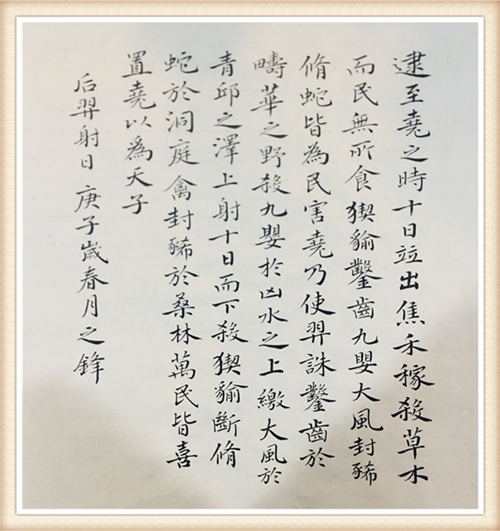 逮至堯之時十日竝出焦禾稼殺草木
而民無所食猰貐鑿齒九嬰大風封豨
脩蛇皆為民害堯乃使羿誅鑿齒於
疇華之野殺九嬰於凶水之上繳大風於
青邱之澤上射十日而下殺猰貐斷脩
蛇於洞庭禽封豨於桑林萬民皆喜
置堯以為天子
后羿射日 庚子歲春月之鋒